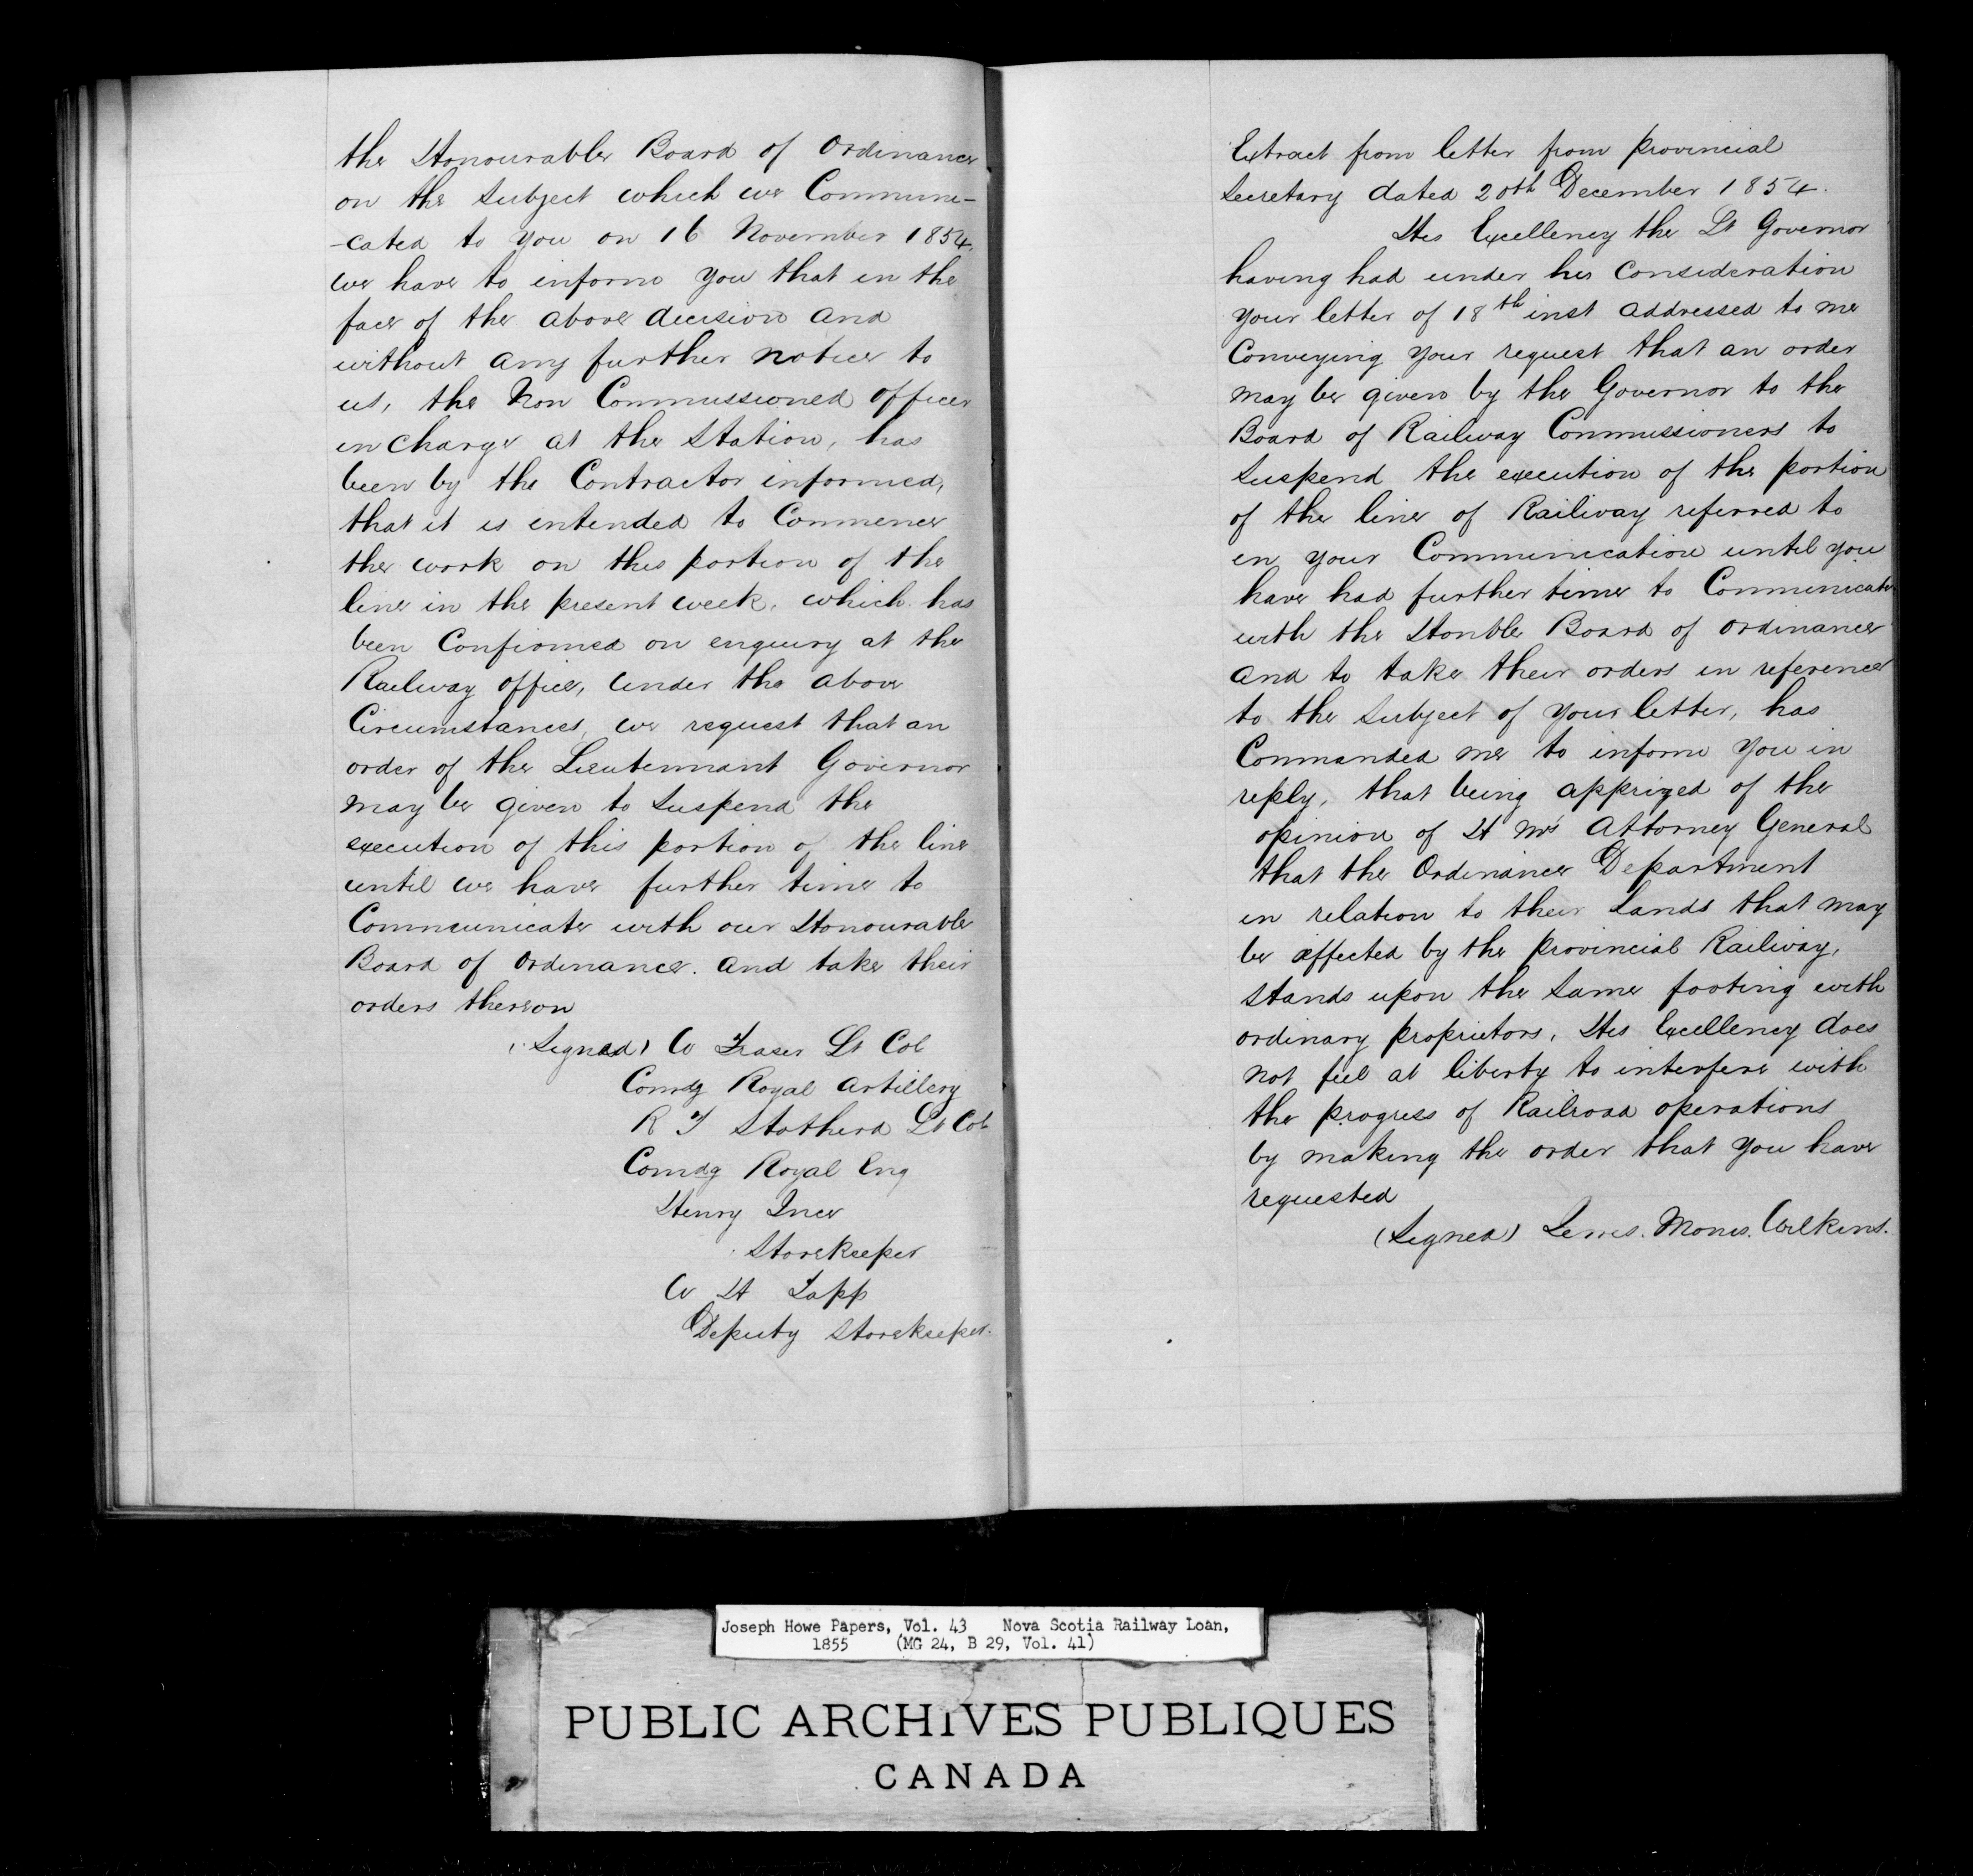 the Honourable Board of Ordinance
on the Subject which we Commune-
-cated to you on 16 November 1854,
we have to inform you that in the
face of the above decision and
without any further notice to
us, the Non Commissioned officer
in charge at the Station, has
been by the Contractor informed,
that it is intended to Commence
the work on this portion of the
line in the present week, which has
been Confirmed on enquiry at the
Railway office, Under the above
Circumstances, we request that an
order of the Lieutennant Governor
may be given to Suspend the
execution of this portion of the line
until we have further time to
Communicate with our Honourable
Board of Ordinance. and take their
orders thereon
(Signed) W Fraser Lt Col
Comdg Royal Artillery
R J Stotherd Lt Col
Comdg Royal Eng
Henry Ince
Storekeeper
W H Tapp
Deputy Storekeeper.
Extract from letter from provincial
Secretary dated 20th December 1854.
His Excellency the Lt Governor
having had under his Consideration
your letter of 18th inst addressed to me
Conveying your request that an order
may be given by the Governor to the
Board of Railway Commissioners to
Suspend the execution of the portion
of the line of Railway referred to
in your Communication until you
have had further time to Communicate
with the Honble Board of Ordinance
and to take their orders in reference
to the Subject of your letter, has
Commanded me to inform you in
reply, that being apprized of the
opinion of H M's Attorney General
that the Ordinance Department
in relation to their Lands that may
be affected by the provincial Railway,
Stands upon the Same footing with
ordinary proprietors, His Excellency does
not feel at liberty to interfere with
the progress of Railroad operations
by making the order that you have
requested
(Signed) Lewis. Morris. Wilkins.
Joseph Howe Papers, Vol. 43 Nova Scotia Railway Loan,
1855 (MG 24, B 29, Vol. 41)
PUBLIC ARCHIVES PUBLIQUES
CANADA